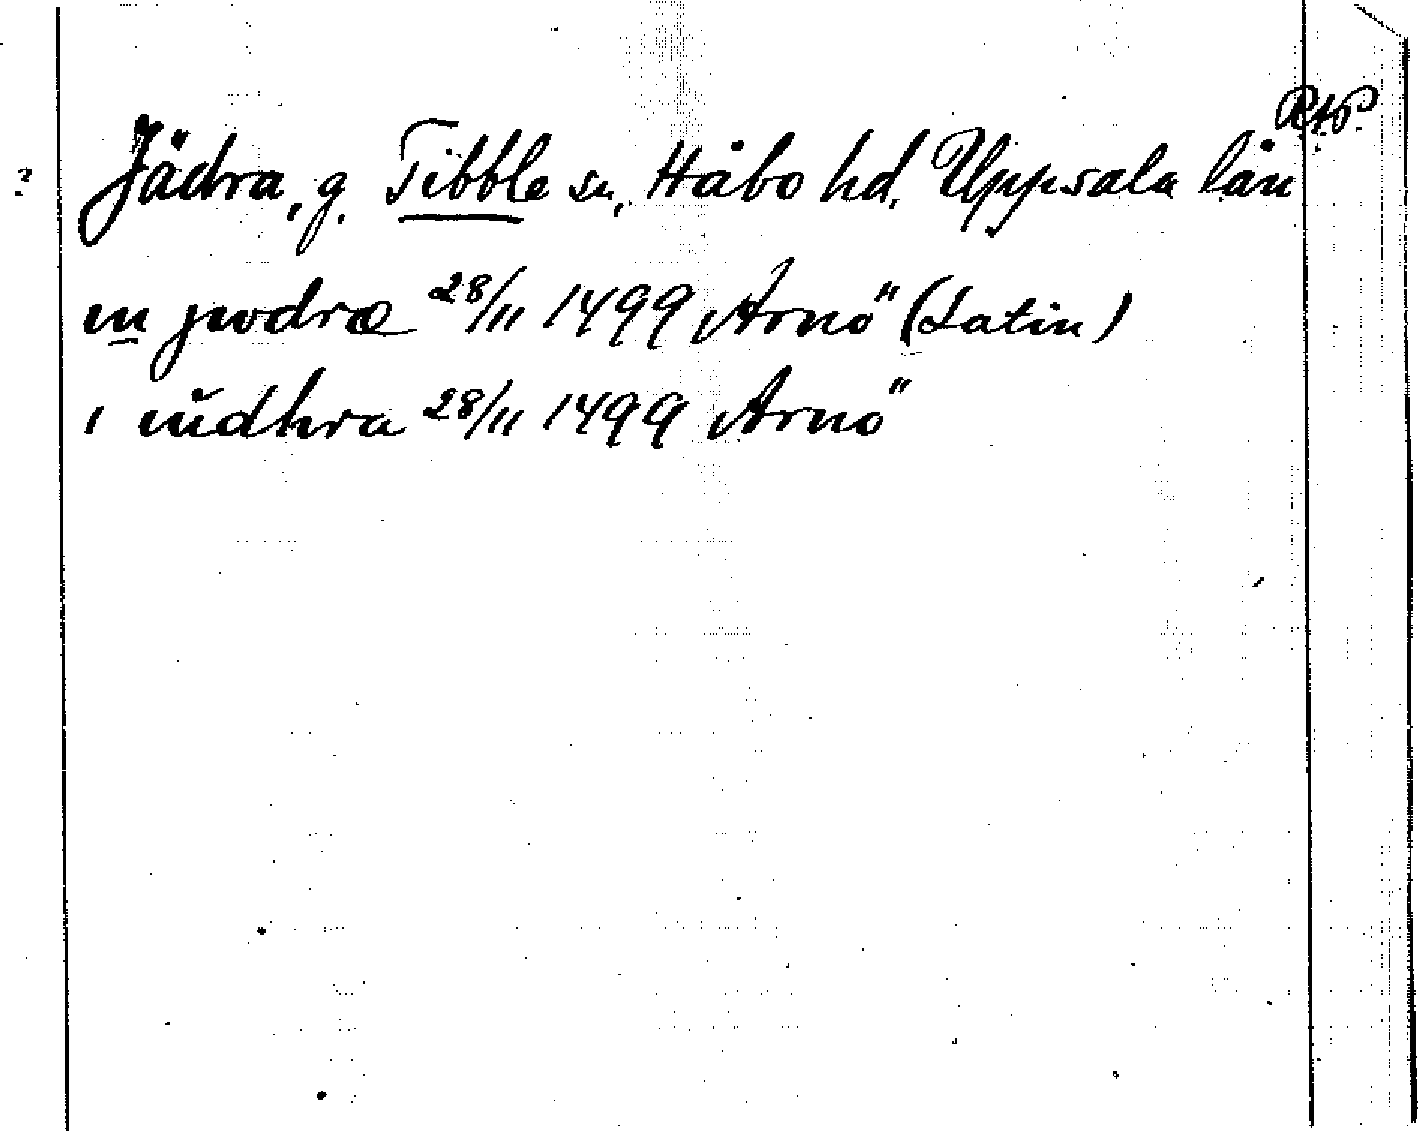 RAP
? Jädra, g. Tibble sn, Håbo hd. Uppsala län
in jwdra 28/11 1499 Arnö (Latin)
i iüdhra 28/11 1499 Arnö